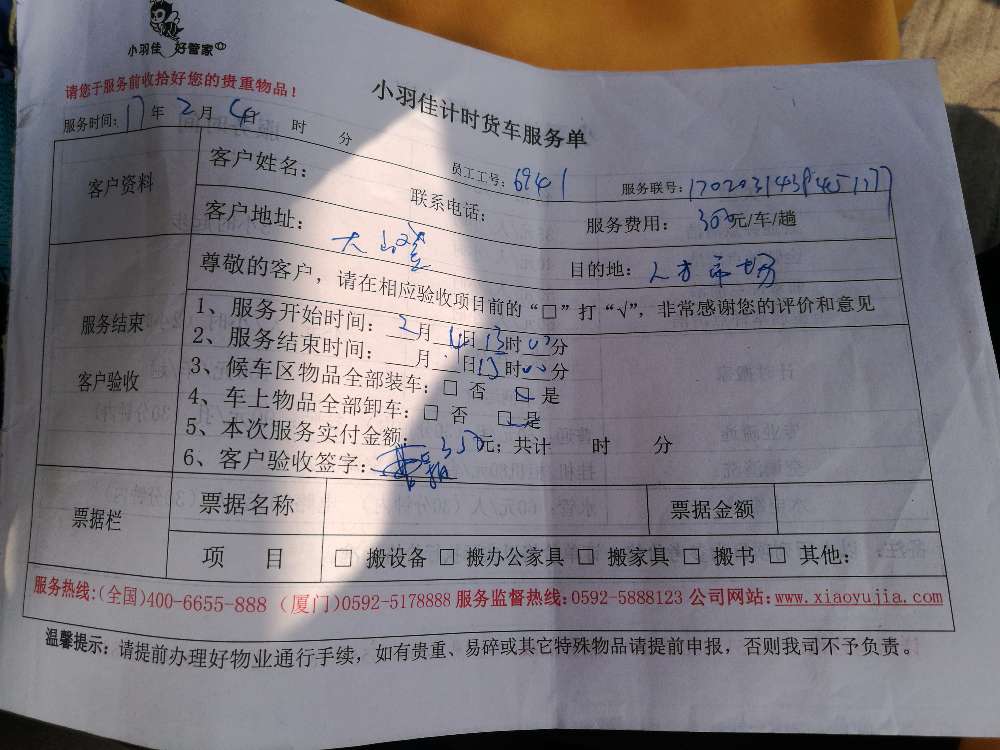 小羽佳 好管家
请您于服务前收拾好您的贵重物品！
小羽佳计时货车服务单
服务时间：17年2月4日 时 分
员工工号：6941
服务联号：
客户资料
客户姓名：
联系电话：
服务费用：300元/车/趟
客户地址：
目的地：
服务结束
客户验收
尊敬的客户，请在相应验收项目前的“□”打“√”，非常感谢您的评价和意见
1、服务开始时间：2月4日13时00分
2、服务结束时间：__月__日13时00分
3、候车区物品全部装车：□ 否 ☑ 是
4、车上物品全部卸车：□ 否 ☑ 是
5、本次服务实付金额：350元；共计 时 分
6、客户验收签字：
票据栏
票据名称
票据金额
项 目
□ 搬设备 □ 搬办公家具 □ 搬家具 □ 搬书 □ 其他：
服务热线：(全国)400-6655-888 (厦门)0592-5178888 服务监督热线：0592-5888123 公司网站：www.xiaoyujia.com
温馨提示：请提前办理好物业通行手续，如有贵重、易碎或其它特殊物品请提前申报，否则我司不予负责。